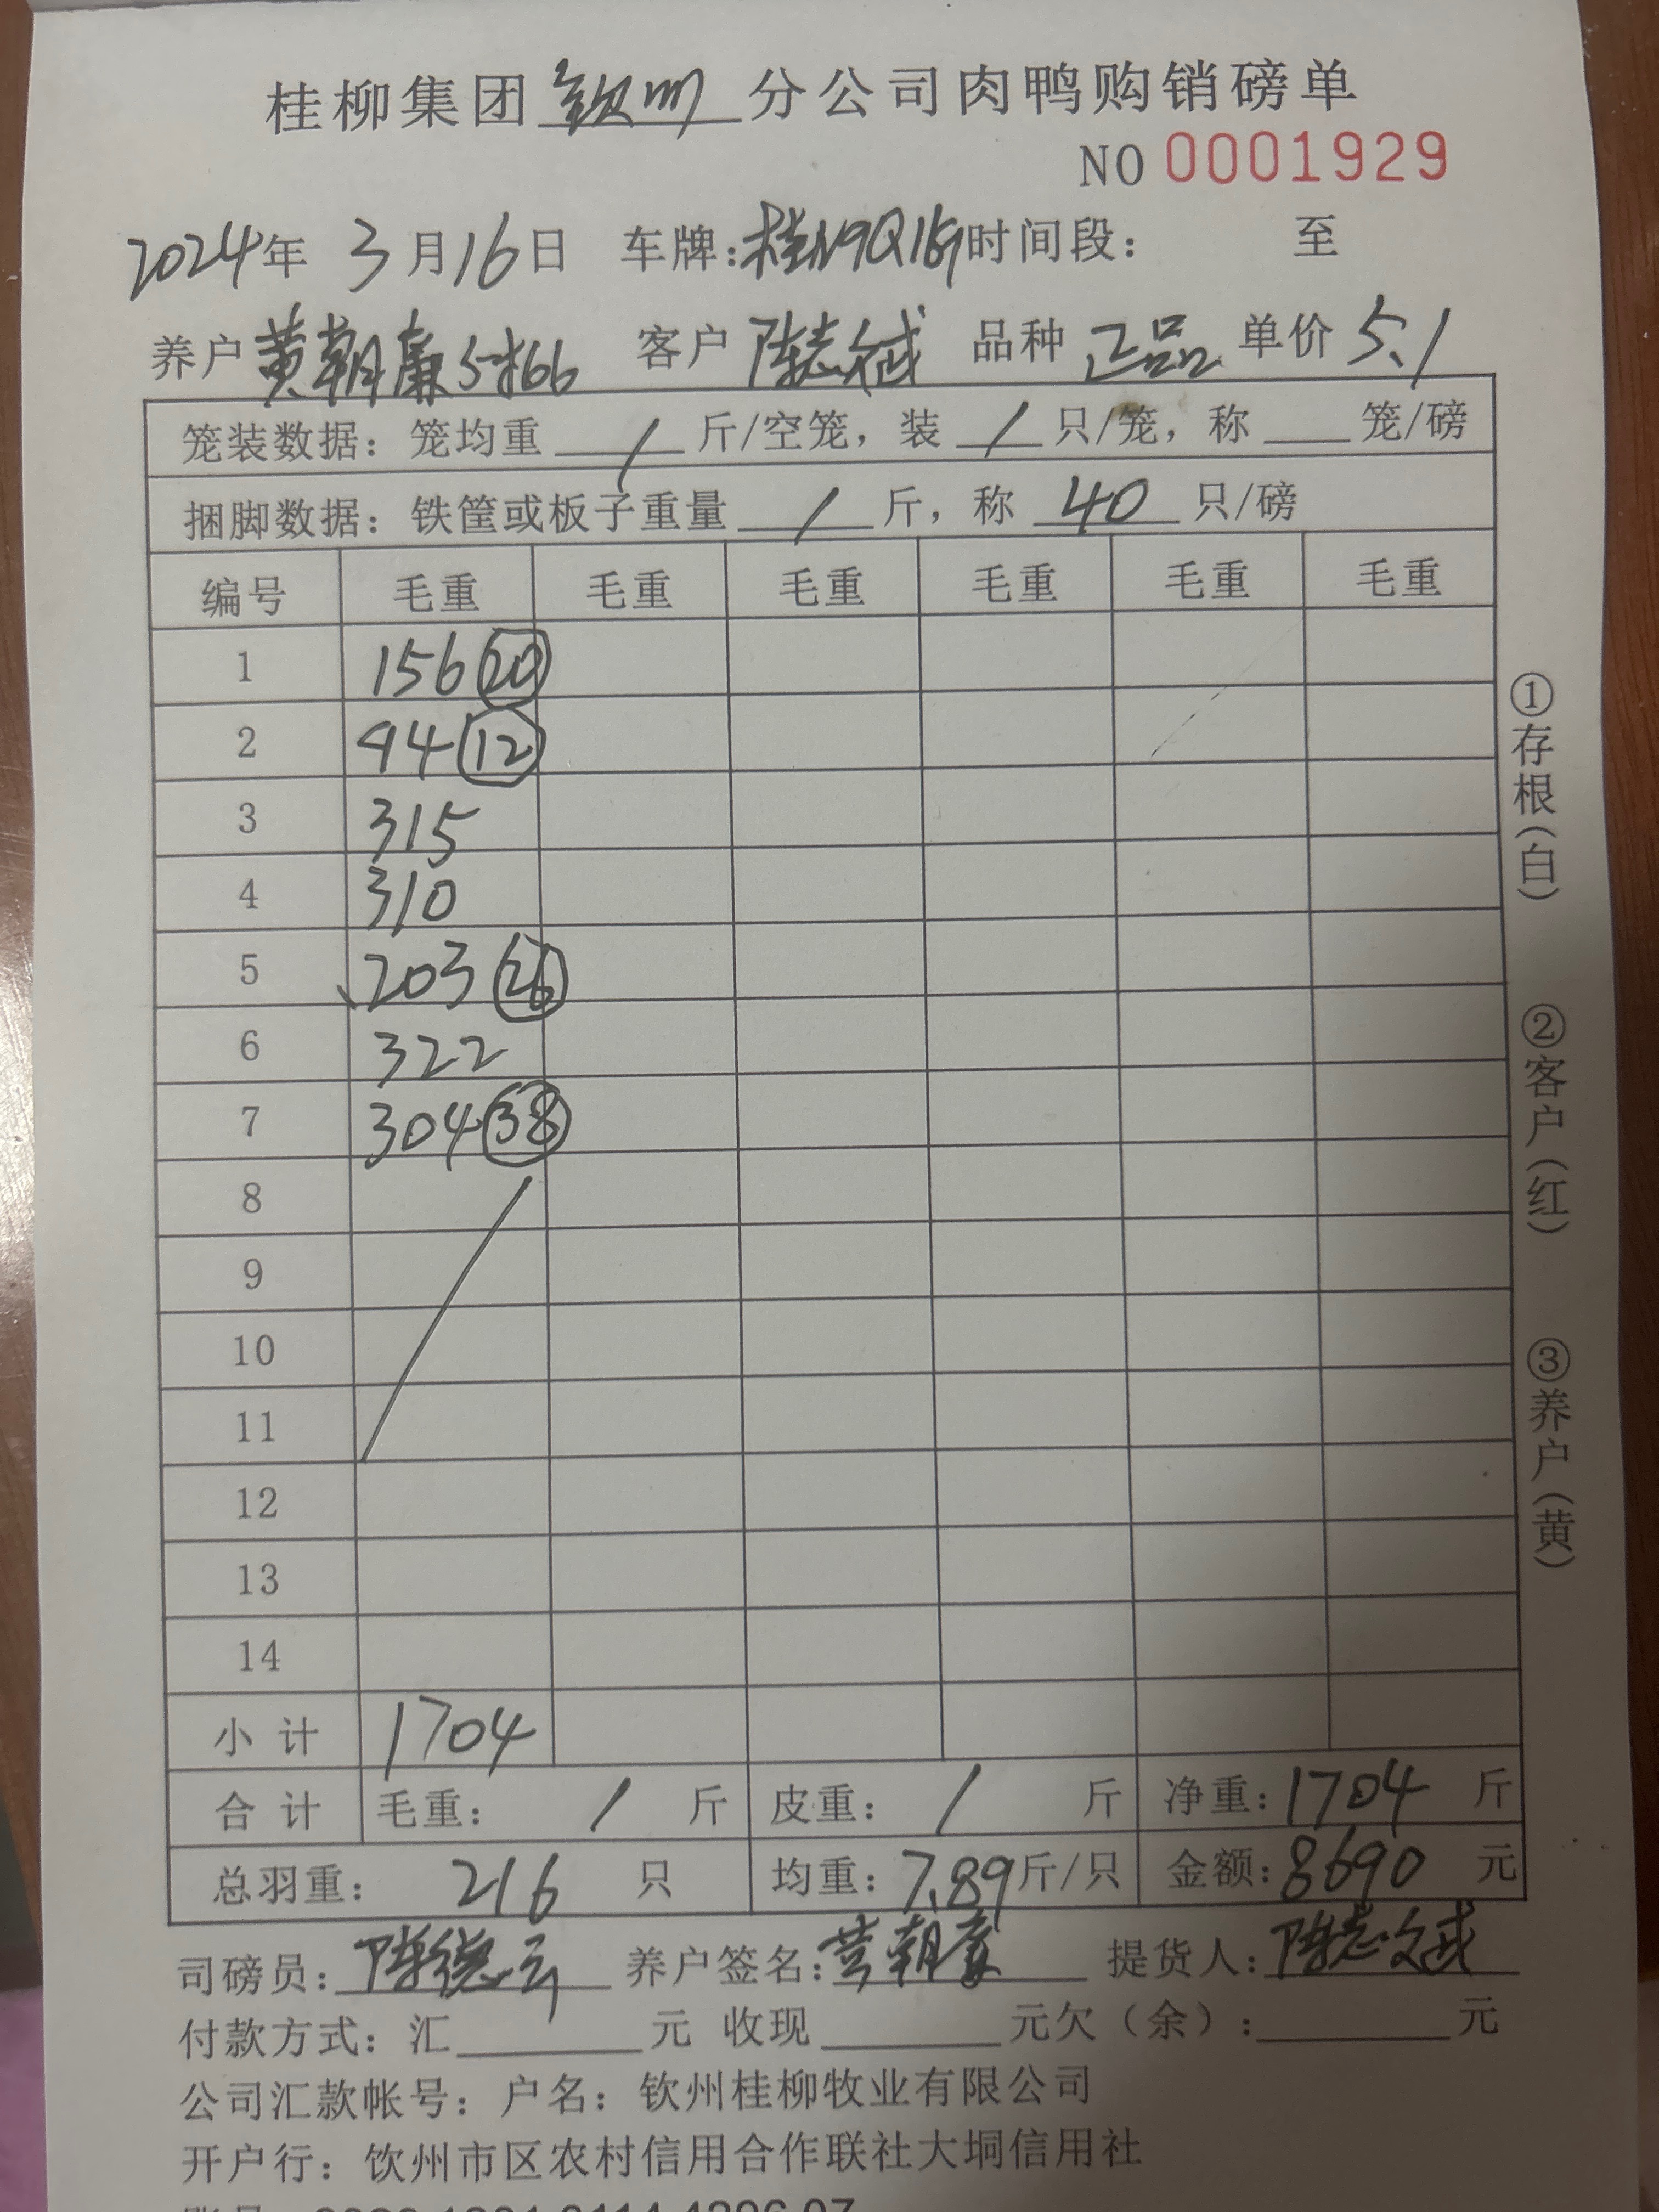 桂柳集团 钦州 分公司肉鸭购销磅单
NO 0001929
2024年 3月16日 车牌: 时间段: 至
养户 黄朝廉 客户 陈志斌 品种 正品 单价 5.1
笼装数据: 笼均重 / 斤/空笼, 装 / 只/笼, 称 笼/磅
捆脚数据: 铁筐或板子重量 / 斤, 称 40 只/磅
编号 毛重 毛重 毛重 毛重 毛重 毛重
1 156 ⑳
2 94 ⑫
3 315
4 310
5 203 ㉖
6 322
7 304 ㊳
8
9
10
11
12
13
14
小 计 1704
合 计 毛重: / 斤 皮重: / 斤 净重: 1704 斤
总羽重: 216 只 均重: 7.89 斤/只 金额: 8690 元
司磅员: 陈德云 养户签名: 黄朝廉 提货人: 陈志斌
付款方式: 汇 元 收现 元欠(余): 元
公司汇款帐号: 户名: 钦州桂柳牧业有限公司
开户行: 钦州市区农村信用合作联社大垌信用社
①存根(白) ②客户(红) ③养户(黄)